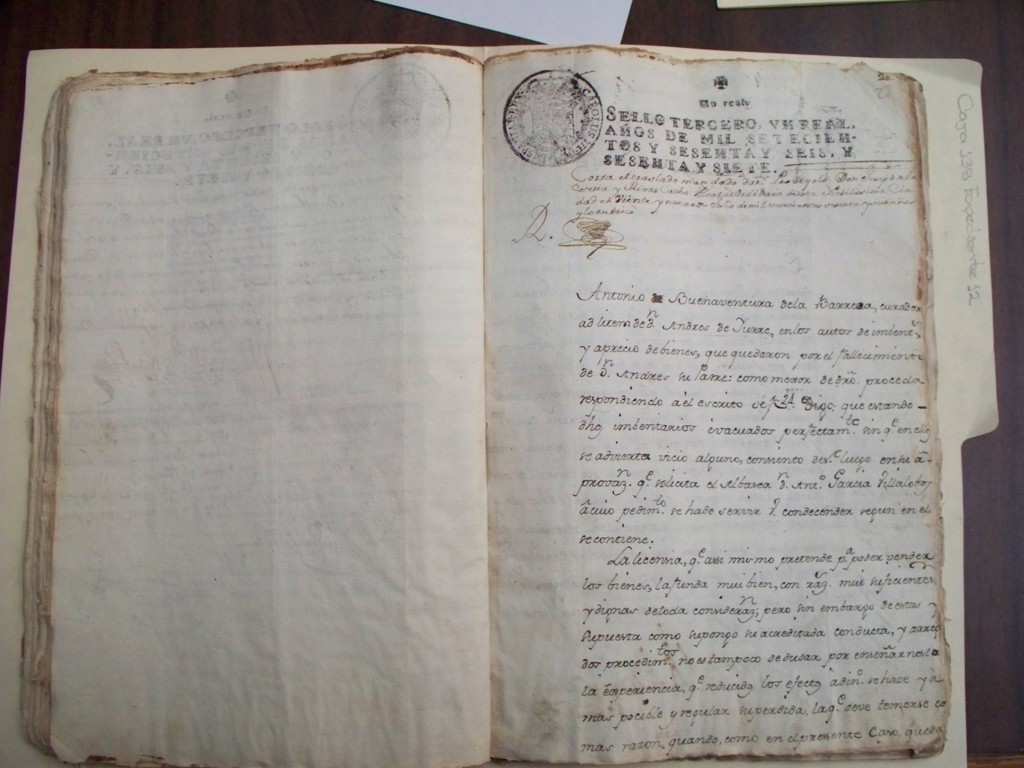 Vn real
SELLO TERCERO, VN REAL,
AÑOS DE MIL SETECIEN-
TOS Y SESENTA Y SEIS, Y
SESENTA Y SIETE.
CAROLUS III
Corra el traslado mandado dar
R.
Antonio Buenaventura dela Barreda, curador
ad litem de dn. Andres de Yurre, enlos autos de imbent.s
y aprecio de bienes, que quedaron por el fallecimiento
de Dn. Andres su Parre: como mejor de dro. proceda
respondiendo a el escrito de f. 24 Digo, que estando
dhos imbentarios evacuados perfectam.te sin q.e en ellos
se advierta vicio alguno, consiento desde luego en su a-
provaz.n q.e solicita el Albasea Dn. Ant.o Garcia Villalobos
a cuio pedim.to se ha de servir V. condecender segun en el
se contiene.
La licensia, q.e assi mismo pretende p.a poder vender
los bienes, la funda mui bien, con raz.s mui suficientes
y dignas de toda consideraz.n; pero sin embargo de estas y
supuesta como supongo su acreditada conducta, y arregla
dos procedim.tos no es tampoco de dudar por enseñarnosla
la experiencia, q.e reducidos los efectos a din.o se hace ya
mas pocible y regular su perdida, la q.e deve temerse co
mas razon, quando, como en el presente Caso, queda
Caja 138 Expediente 12